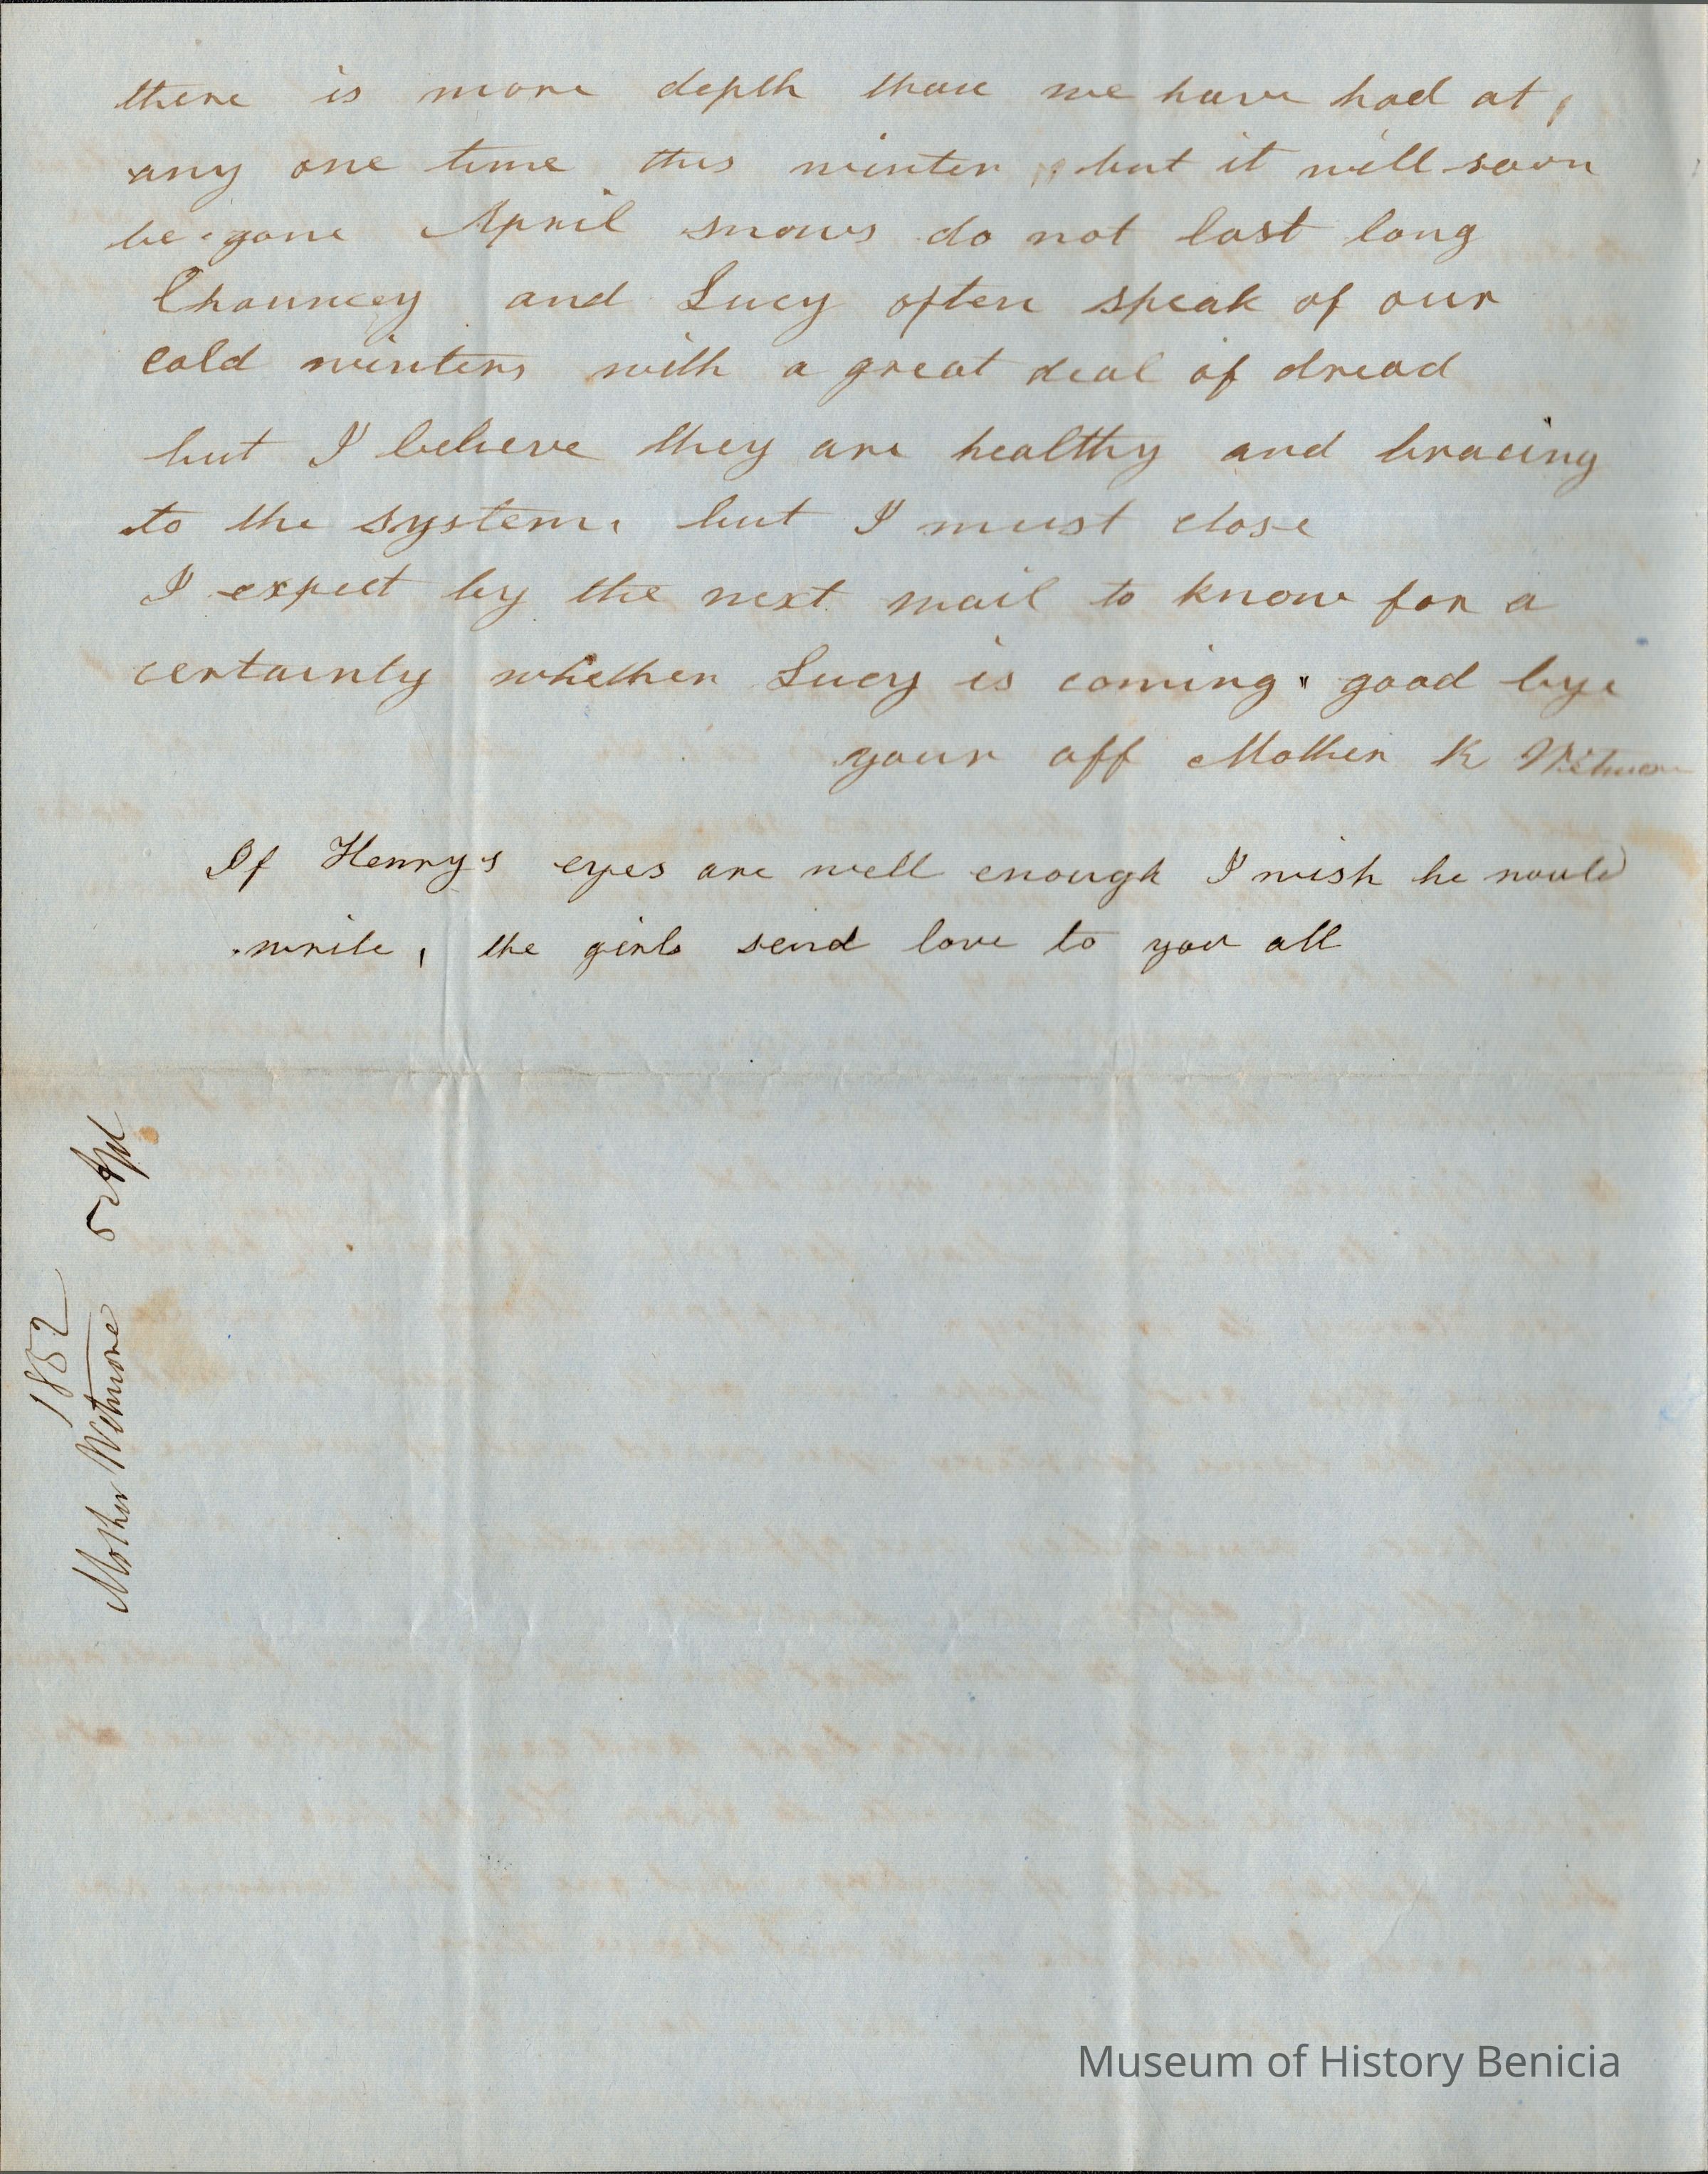 there is more depth than we have had at
any one time this winter but it will soon
be gone April snows do not last long
Chauncey and Lucy often speak of our
cold winters with a great deal of dread
but I believe they are healthy and bracing
to the system, but I must close
I expect by the next mail to know for a
certainty whether Lucy is coming. good bye
your aff Mother K Wetmore
If Henry's eyes are well enough I wish he would
write, the girls send love to you all
1852
Mother Wetmore 5 Apl
Museum of History Benicia